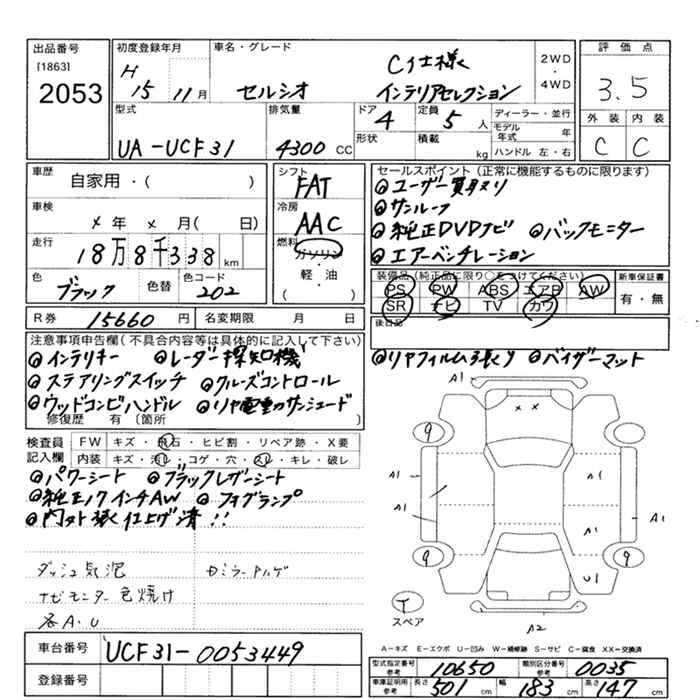 出品番号
[1863]
2053
初度登録年月
H 15 11月
車名・グレード
セルシオ
C仕様
インテリアセレクション
2WD
・
4WD
評価点
3.5
外装 内装
C C
型式
UA-UCF31
排気量
4300 CC
ドア 4
形状
定員 5 人
積載 kg
ディーラー・並行
モデル年式 年
ハンドル 左・右
車歴
自家用・( )
車検
×年 ×月( 日)
走行
18万8千338 km
色
ブラック
色替
色コード
202
シフト
FAT
冷房
AAC
燃料
ガソリン
・
軽・油
( )
セールスポイント(正常に機能するものに限ります)
◎ユーザー買取り
◎サンルーフ
◎純正DVDナビ ◎バックモニター
◎エアーベンチレーション
装備品(純正品に限り○をつけてください)
PS PW ABS エアB AW
SR ナビ TV カワ
新車保証書
有・無
R券 15660円
名変期限 月 日
後日品
注意事項申告欄(不具合内容等は具体的に記入して下さい)
◎インテリキー ◎レーダー探知機
◎ステアリングスイッチ ◎クルーズコントロール
◎ウッドコンビハンドル ◎リヤ電動サンシェード
修復歴 有 〔箇所 〕
◎リヤフィルム張り ◎バイザーマット
検査員
記入欄
FW キズ・飛石・ヒビ割・リペア跡・X要
内装 キズ・汚レ・コゲ・穴・スレ・キレ・破レ
◎パワーシート ◎ブラックレザーシート
◎純正17インチAW ◎フォグランプ
◎内外装仕上げ済!!
ダッシュ気泡
ナビモニター色焼け
各A.U
車台番号
UCF31-0053449
登録番号
A1
× ×
9
A1
A1
A1
A1
A1
U1
9
9
T
スペア
A2
A-キズ E-エクボ U-凹み W-補修跡 S-サビ C-腐食 XX-交換済
型式指定番号
参考
10650
類別区分番号
参考
0035
車庫証明用
参考
長さ 501 cm
幅 183 cm
高さ 147 cm